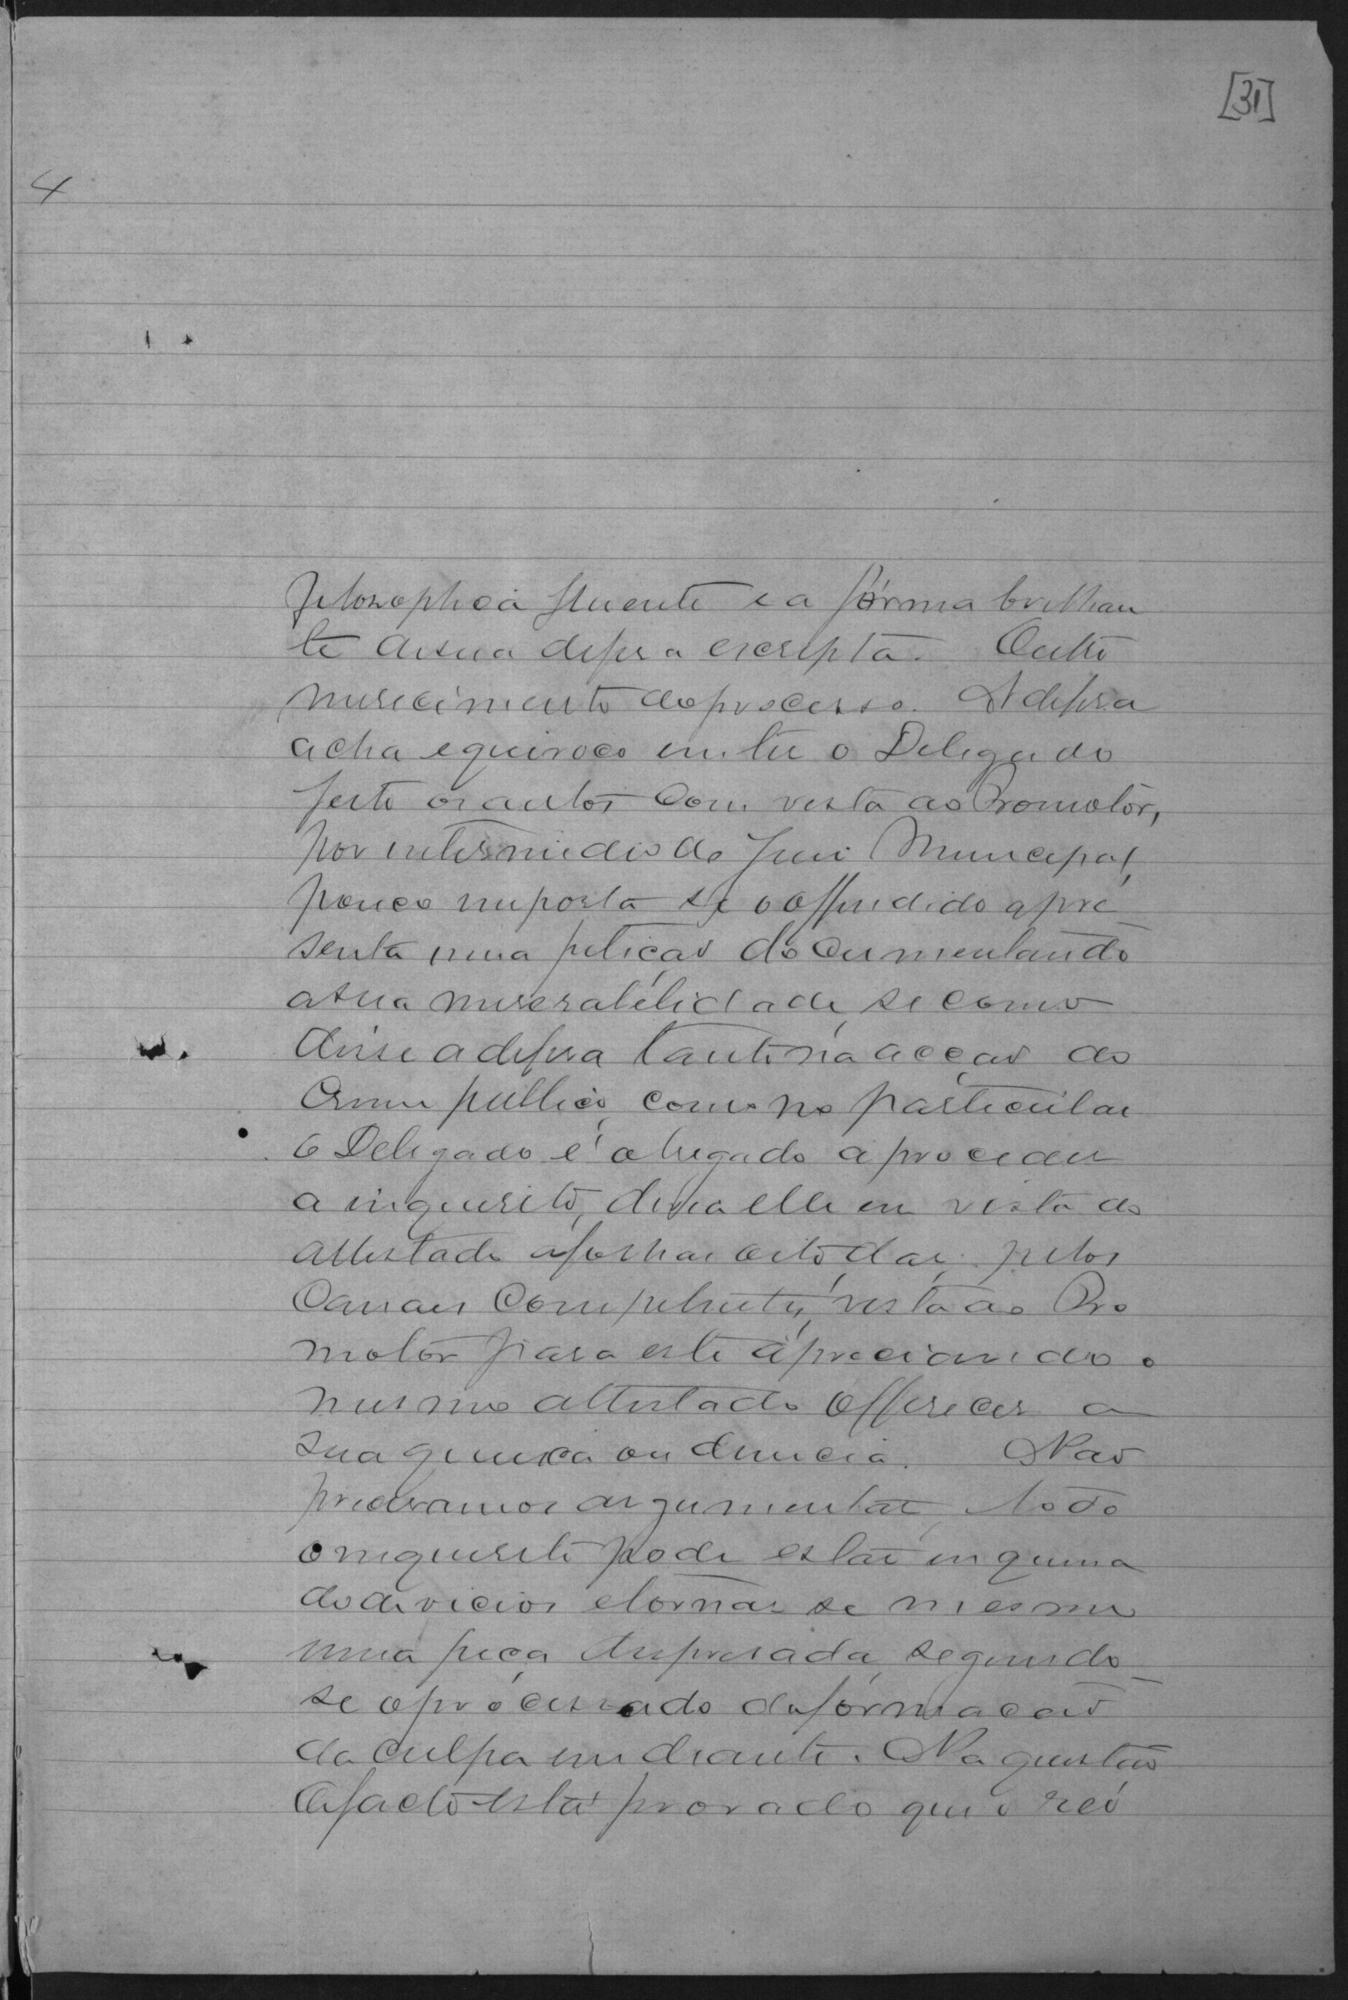 [31]
4
philosophica fluente e a fórma brilhan
te de sua defesa escripta. Outro
merecimento do processo. A defesa
acha equivoco em ter o Delegado
feito os autos com vista ao Promotor,
por intermedio do Juiz Municipal,
pouco importa se o offendido apre
senta uma petição documentando
a sua miserabilidade, se como
disse a defesa tanto na acção do
crime publico, como no particular
o Delegado é obrigado a proceder
a inquerito, devia elle em vista do
attestado a folhas oito, dar, pelos
canaes competentes, vista ao Pro
motor para este apreciando o
mesmo attestado offerecer a
sua queixa ou denuncia. Não
precisamos argumentar, todo
o inquerito pode estar inquina
do de vicios e tornar se mesmo
uma peça despresada, seguindo
se o processado da formação
da culpa em diante. Na questão
o facto está provado que o réo